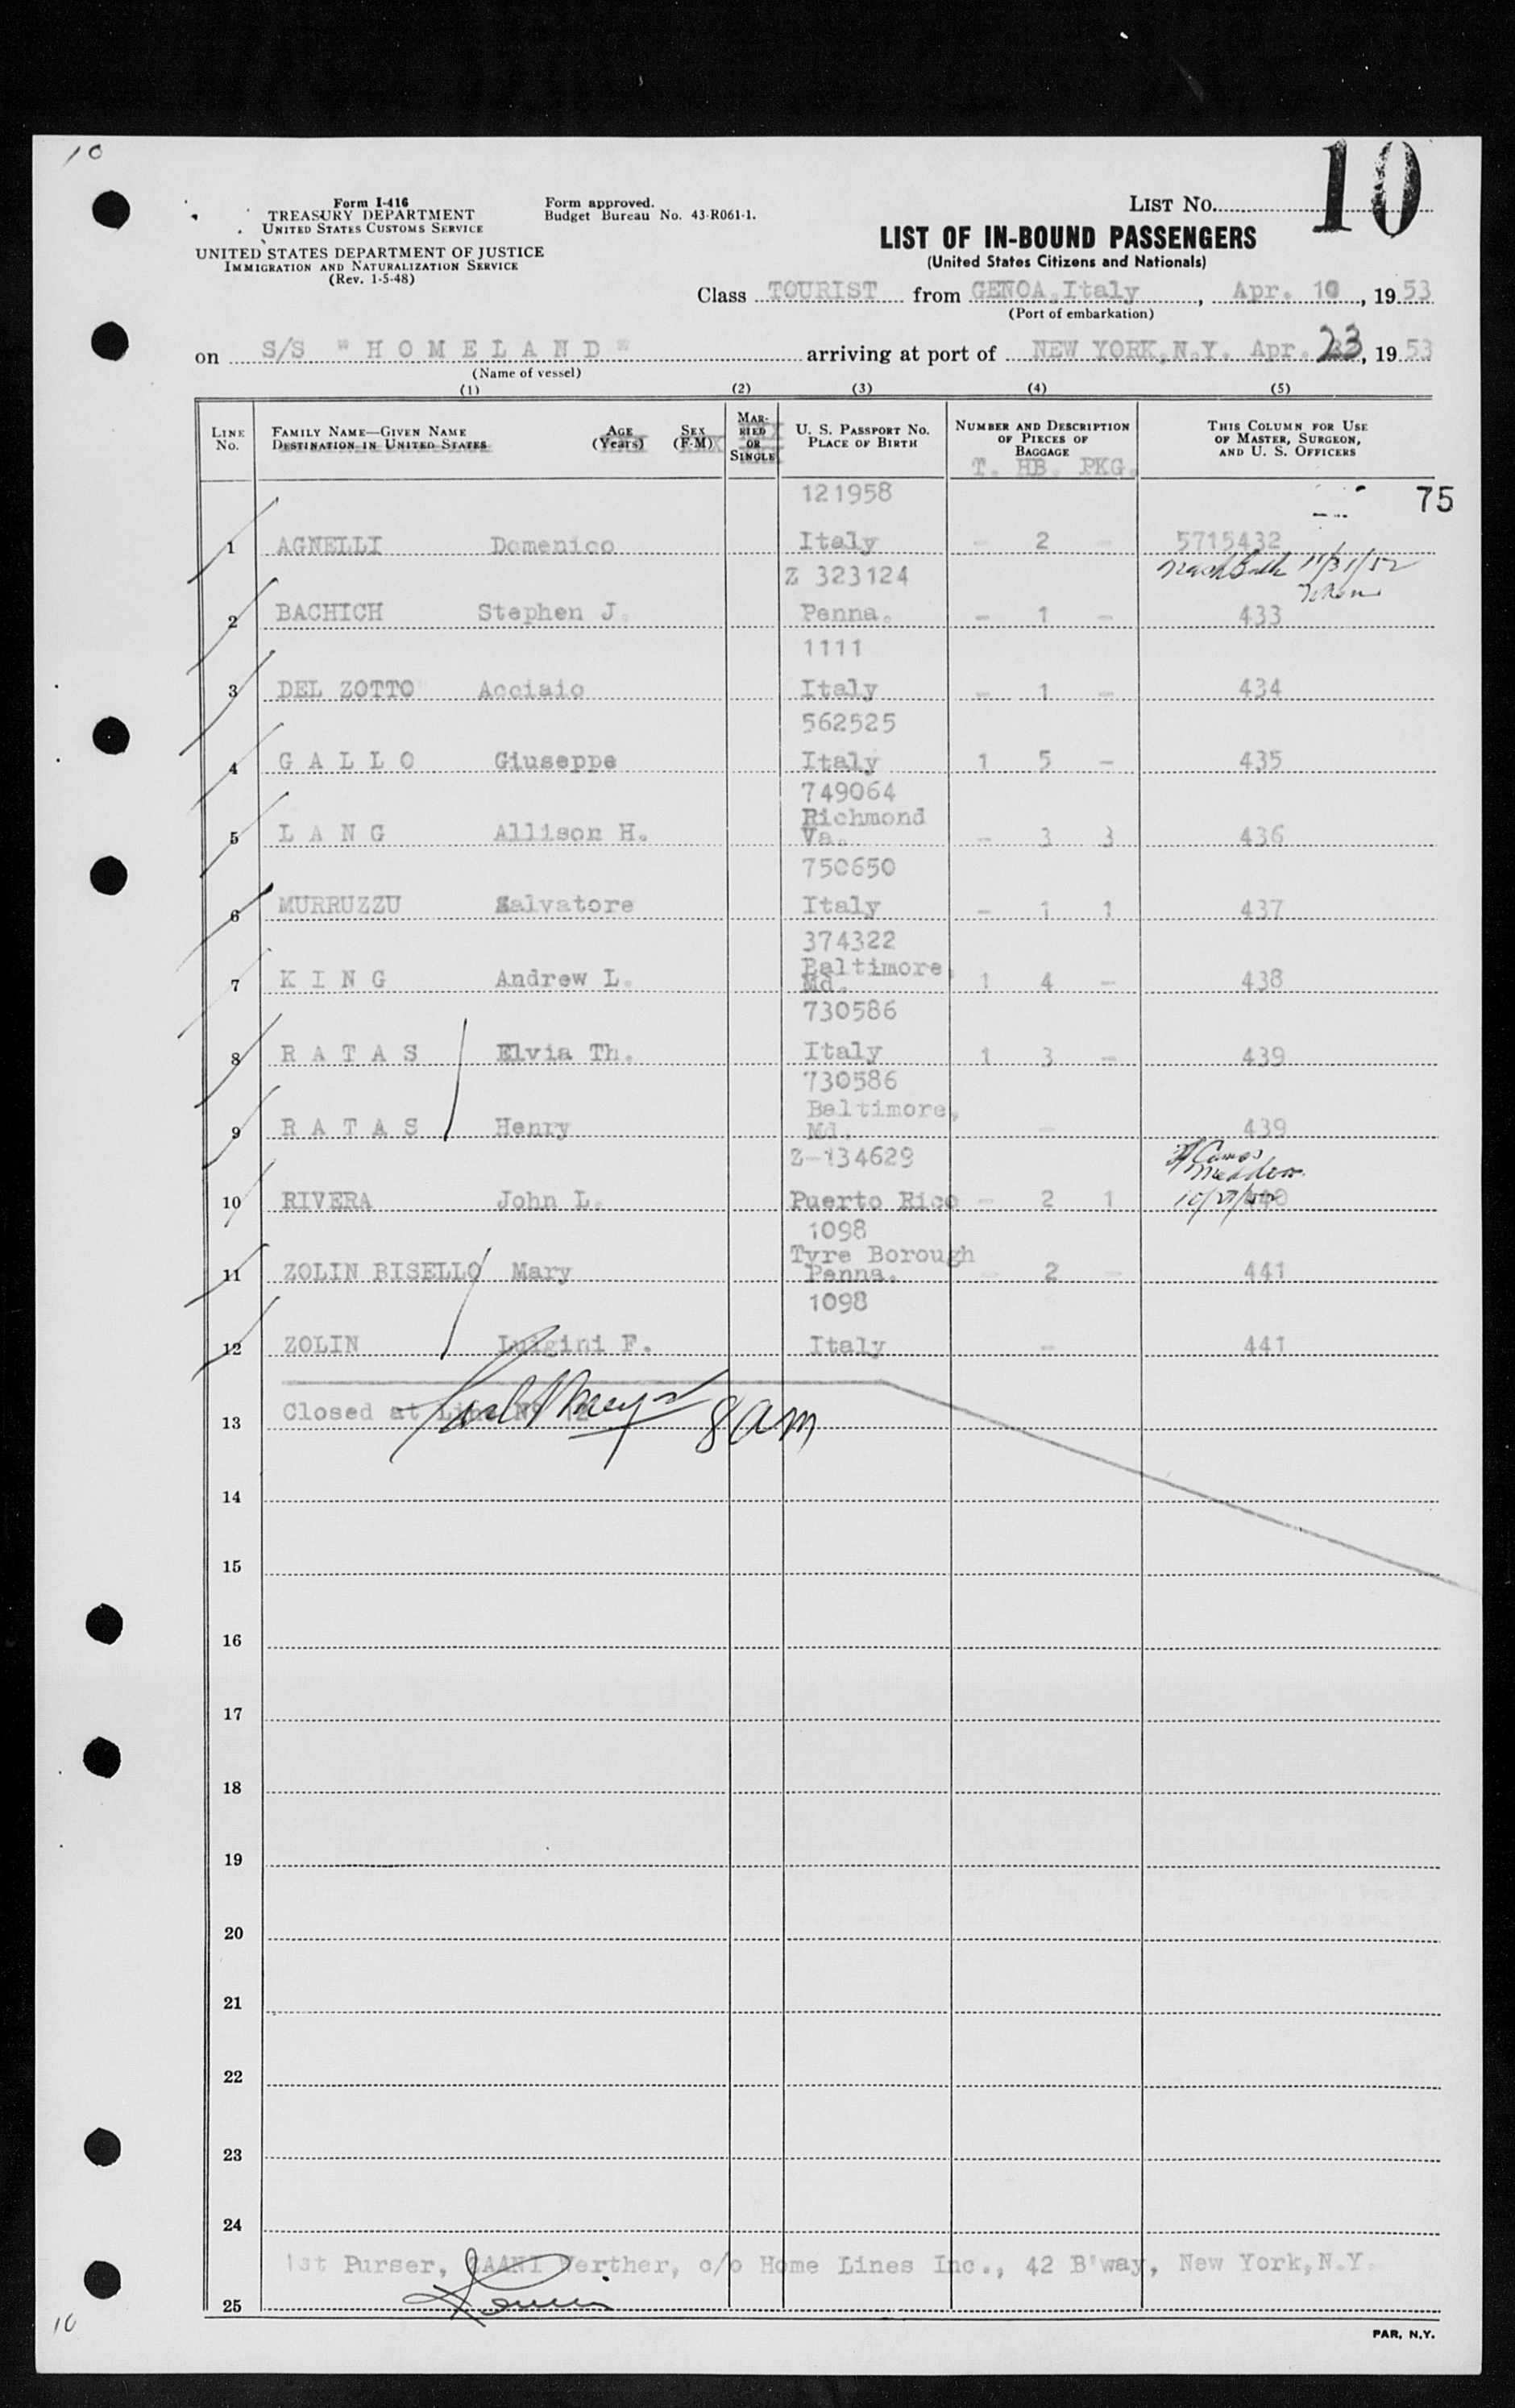 10
Form I-416
TREASURY DEPARTMENT
UNITED STATES CUSTOMS SERVICE
UNITED STATES DEPARTMENT OF JUSTICE
IMMIGRATION AND NATURALIZATION SERVICE
(Rev. 1-5-48)
Form approved.
Budget Bureau No. 43-R061-1.
LIST NO. 10
LIST OF IN-BOUND PASSENGERS
(United States Citizens and Nationals)
Class TOURIST from GENOA, Italy, Apr. 10, 1953
(Port of embarkation)
on S/S "HOMELAND" arriving at port of NEW YORK, N.Y. Apr. 23, 1953
(Name of vessel)
(1) (2) (3) (4) (5)
LINE NO. FAMILY NAME—GIVEN NAME DESTINATION IN UNITED STATES AGE (Years) SEX (F-M) MARRIED OR SINGLE U. S. PASSPORT NO. PLACE OF BIRTH NUMBER AND DESCRIPTION OF PIECES OF BAGGAGE THIS COLUMN FOR USE OF MASTER, SURGEON, AND U. S. OFFICERS
T. HB. PKG.
121958 75
1 AGNELLI Domenico Italy - 2 - 5715432
Z 323124
2 BACHICH Stephen J. Penna. - 1 - 433
1111
3 DEL ZOTTO Acciaio Italy - 1 - 434
562525
4 G A L L O Giuseppe Italy 1 5 - 435
749064
Richmond
5 L A N G Allison H. Va. - 3 3 436
750650
6 MURRUZZU Salvatore Italy - 1 1 437
374322
Baltimore,
7 K I N G Andrew L. Md. 1 4 - 438
730586
8 R A T A S Elvia Th. Italy 1 3 - 439
730586
Baltimore,
9 R A T A S Henry Md. - 439
Z-134629
10 RIVERA John L. Puerto Rico - 2 1 440
1098
Tyre Borough
11 ZOLIN BISELLO Mary Penna. - 2 - 441
1098
12 ZOLIN Luigini F. Italy - 441
13 Closed at Line Nº 12 8 am
14
15
16
17
18
19
20
21
22
23
24
1st Purser, Werther, c/o Home Lines Inc., 42 B'way, New York, N.Y.
25
10
PAR, N.Y.